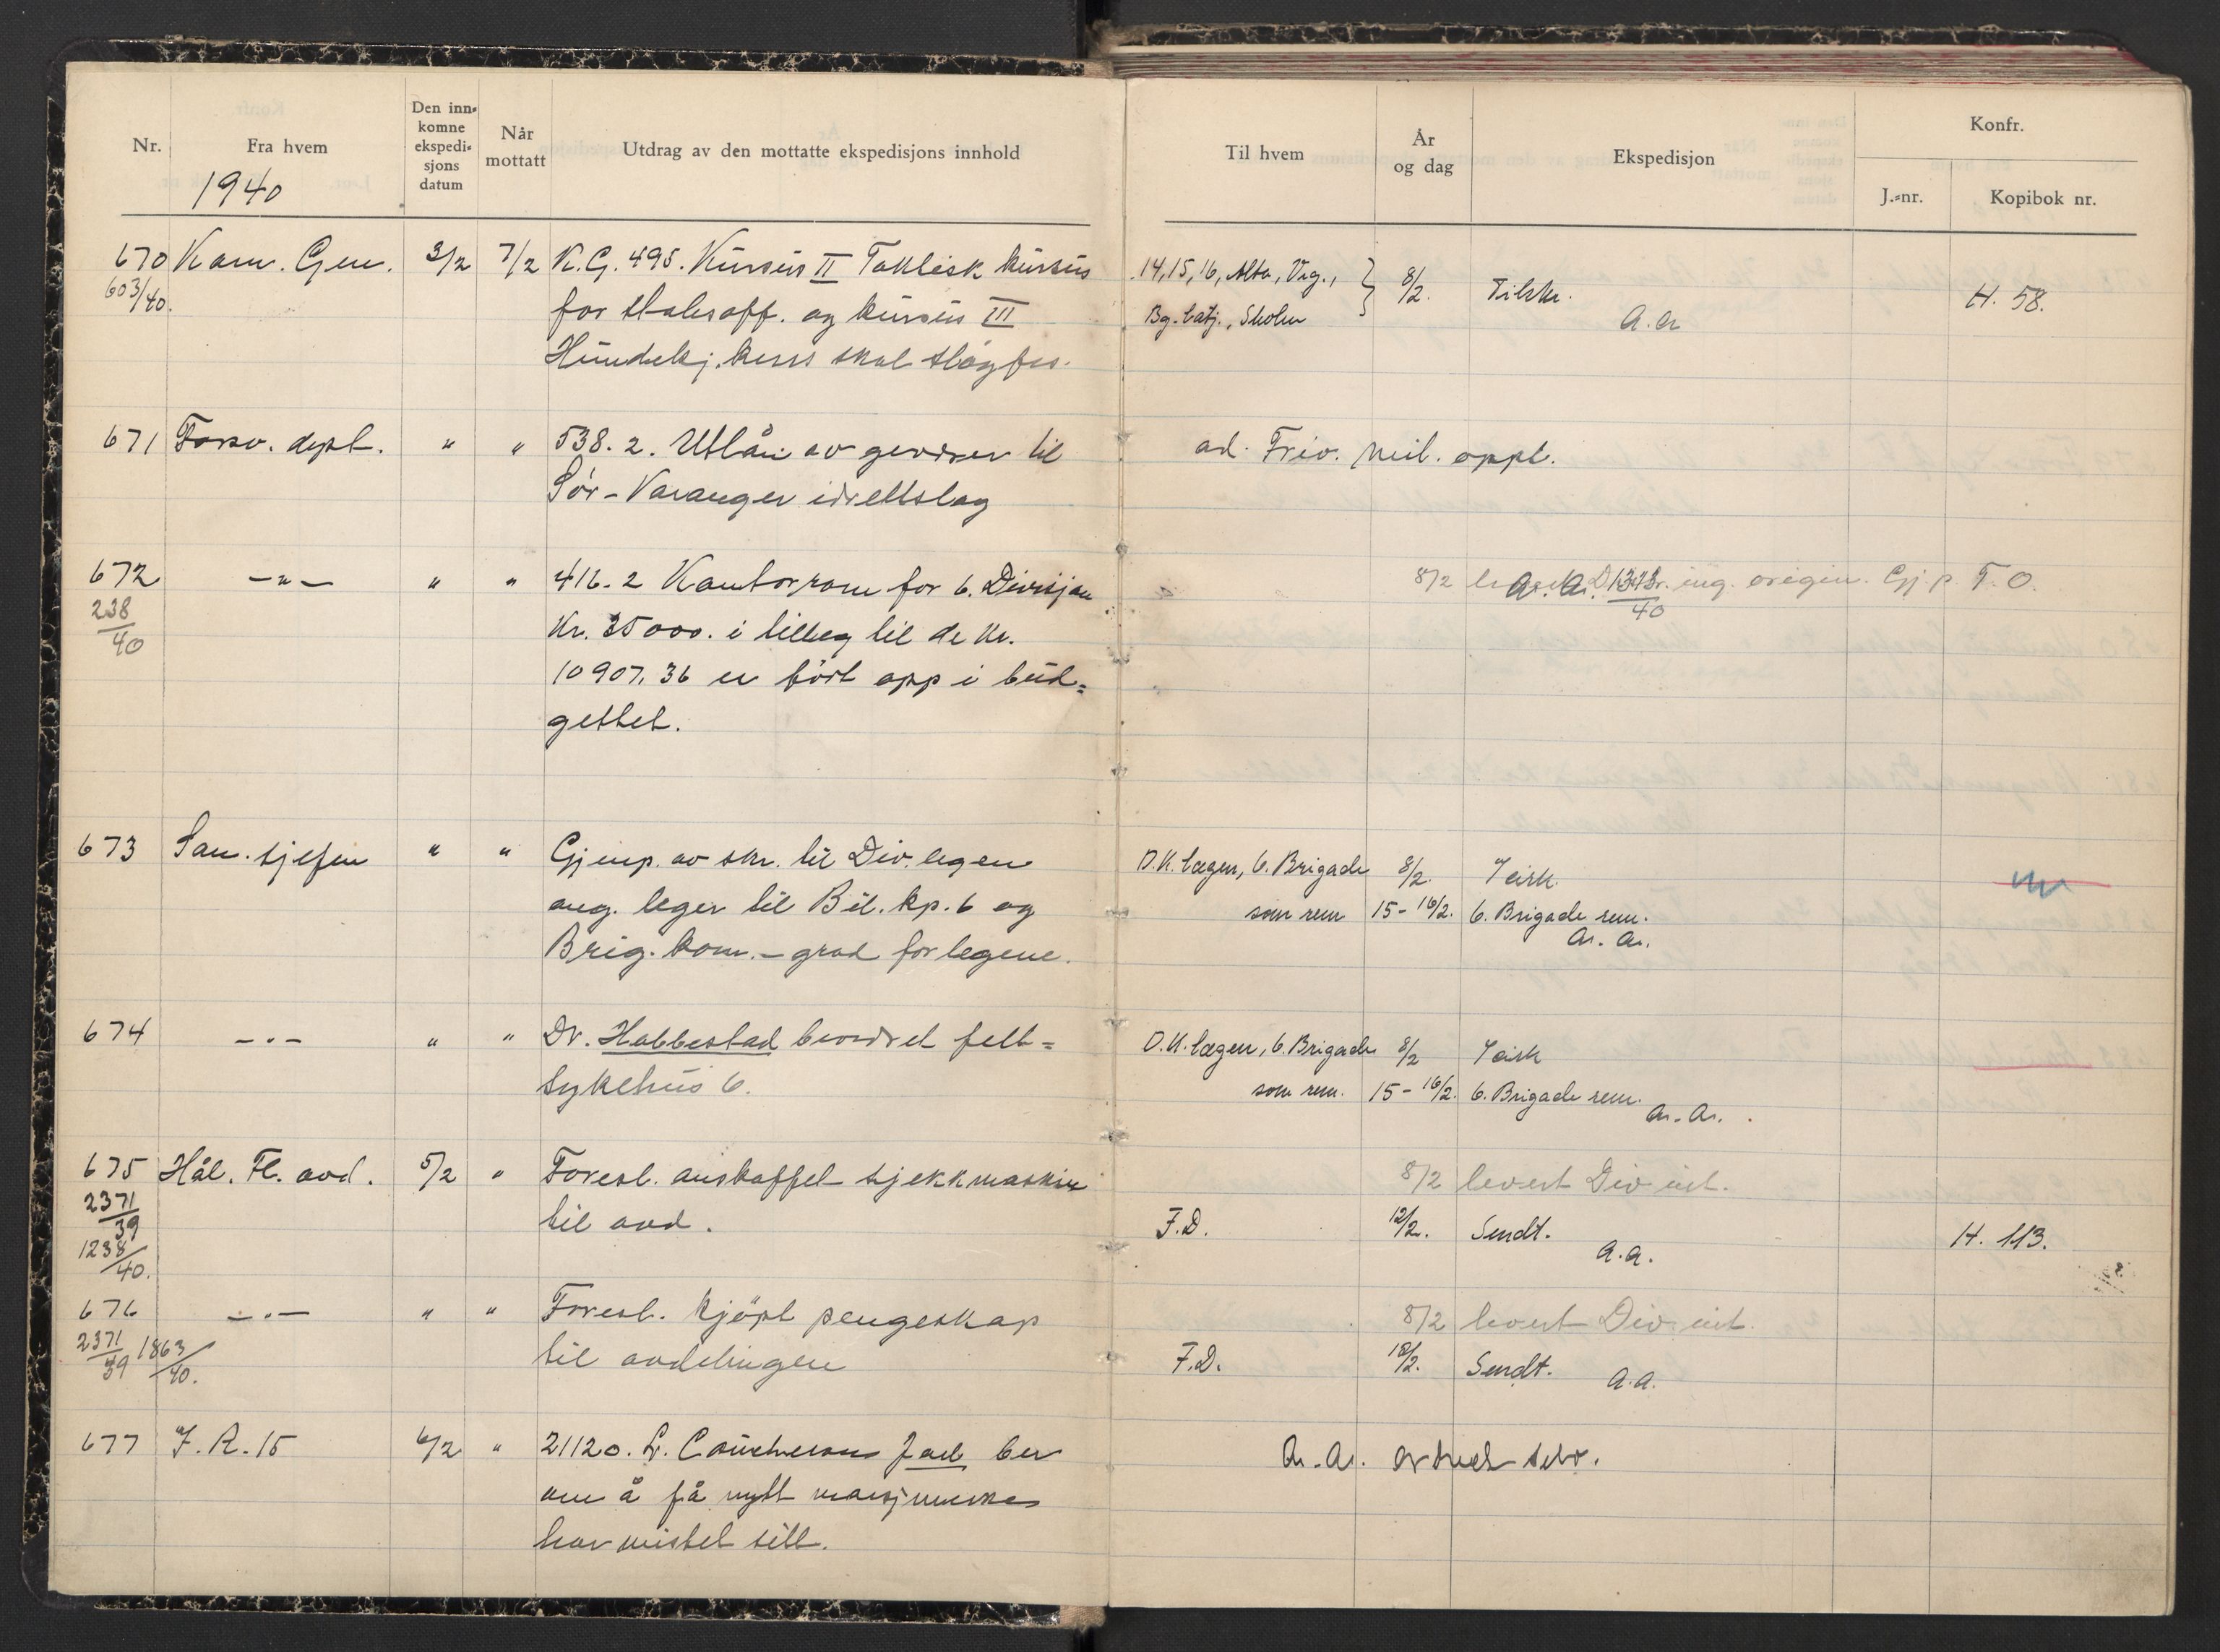 Nr.
Fra hvem
Den inn-
komne
ekspedi-
sjons
datum
Når
mottatt
Utdrag av den mottatte ekspedisjons innhold
1940
670 Kom. Gen. 3/2 7/2 K.G. 495. Kursus II Taktisk kursus
603/40. for stabsoff. og kursus III
Hundekj. kurs skal sløyfes.
671 Forsv. dept. " " 538.2. Utlån av geværer til
Sör-Varanger idrettslag
672 -"- " " 416.2 Kontorrom for 6. Divisjon
238/40 Kr. 35000. i tillegg til de kr.
10907,36 er fört opp i bud=
gettet.
673 San. sjefen " " Gjenp. av skr. til Div. legen
ang. leger til Bil. kp. 6 og
Brig. kom. - grad for legene.
674 -"- " " Dr. Habbestad beordret felt=
sykehus 6.
675 Hål. Fl. avd. 5/2 " Foresl. anskaffet sjekkmaskin
2371/39 til avd.
1238/40.
676 -"- " " Foresl. kjöpt pengeskap
2371/39 1863/40. til avdelingen
677 I.R. 15 6/2 " 21120. L. Jak ber
om å få nytt marsjmerke
har mistet sitt.
Til hvem
År
og dag
Ekspedisjon
Konfr.
J.-nr.
Kopibok nr.
14, 15, 16, Alta, Vrg., } 8/2. Tilskr. H. 58.
Bg. batj., Skolen A.a
ad. Friv. mil. oppl.
8/2 a.a. 1373/40 ing. origin. Gj. p. T.O.
D.K. lægen, 6. Brigade 8/2.
som rem 15-16/2. 6. Brigade rem.
a.a.
D.K. lægen, 6. Brigade 8/2
som rem. 15-16/2. 6. Brigade rem.
a.a.
8/2 levert Div int.
F.D. 12/2. Sendt. H. 113.
a.a.
8/2 levert Div int.
F.D. 18/2. Sendt.
a.a.
a.a.